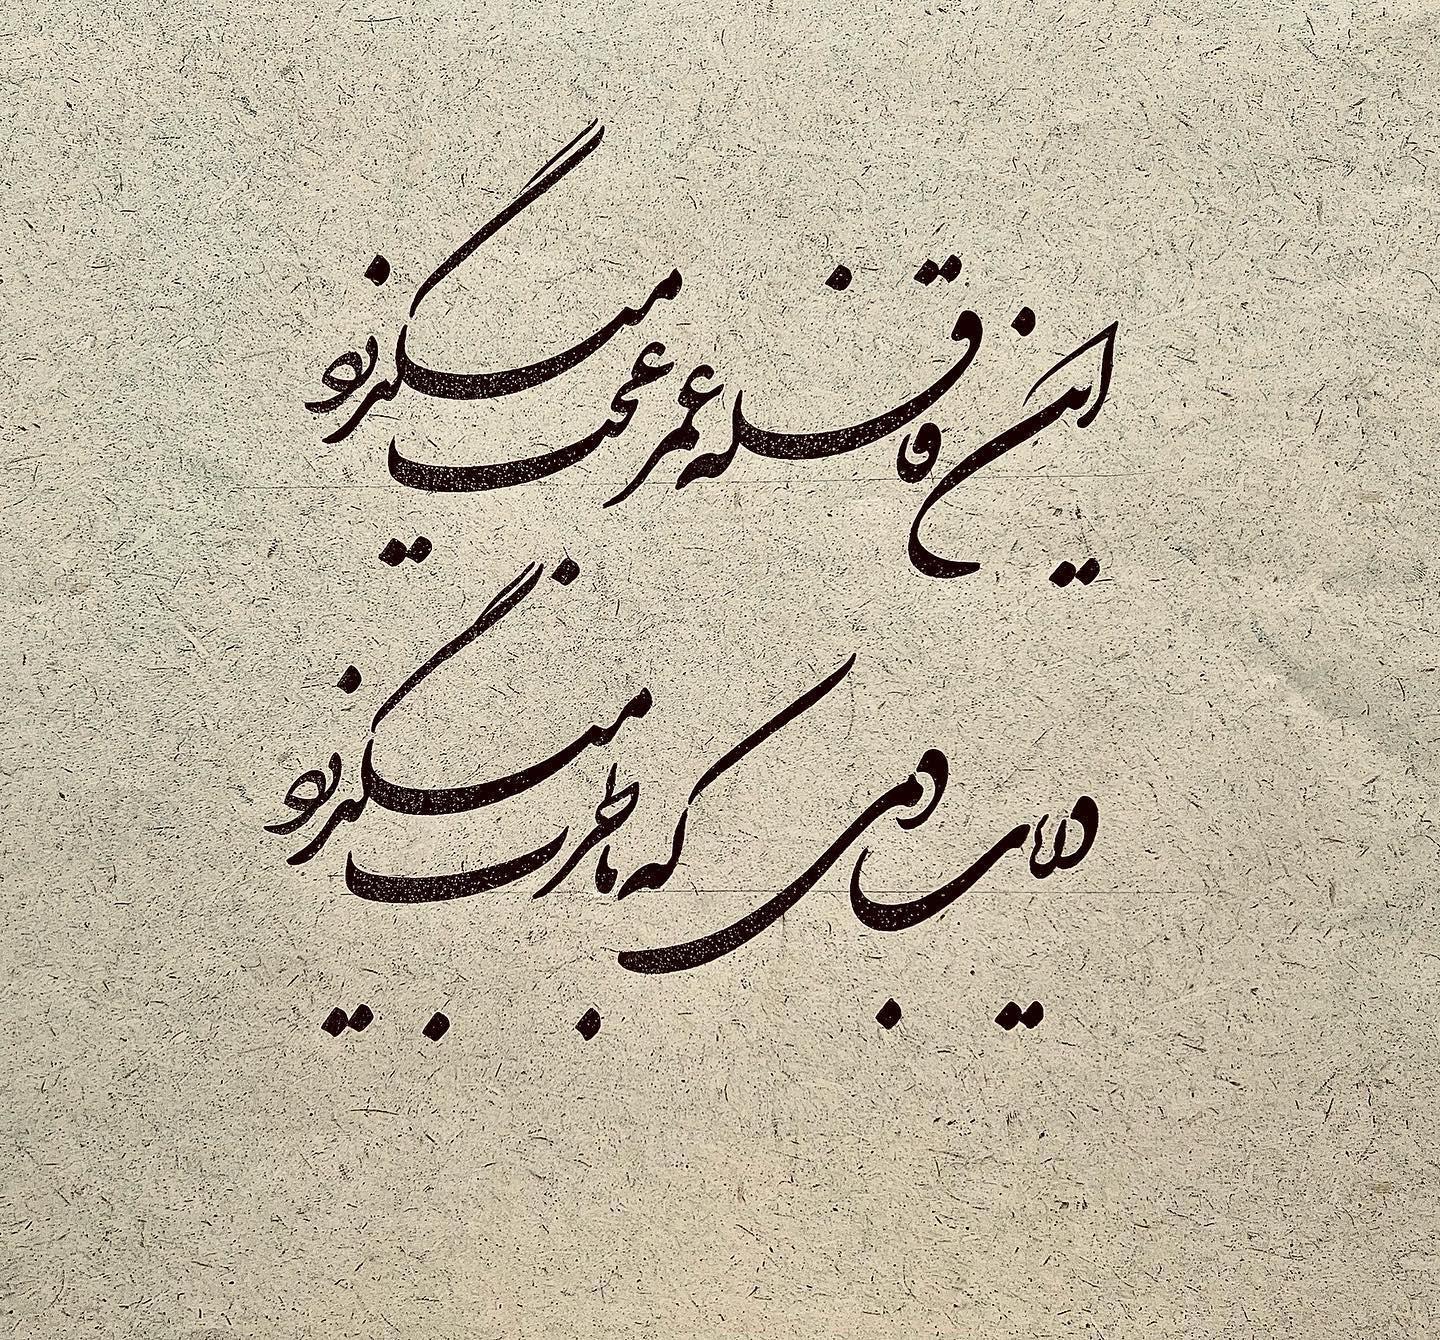 این قافله عمر عجب میگذرد
دریاب دمی که با طرب میگذرد